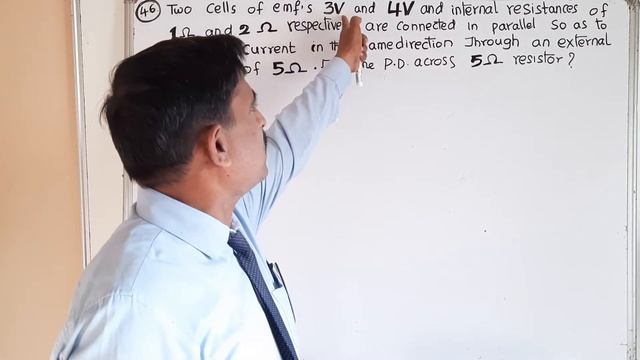 46 Two cells of emf's 3V and 4V and internal resistances of
1Ω and 2Ω are connected in parallel so as to
current in the same direction Through an external
of 5Ω. P.D. across 5Ω resistor?